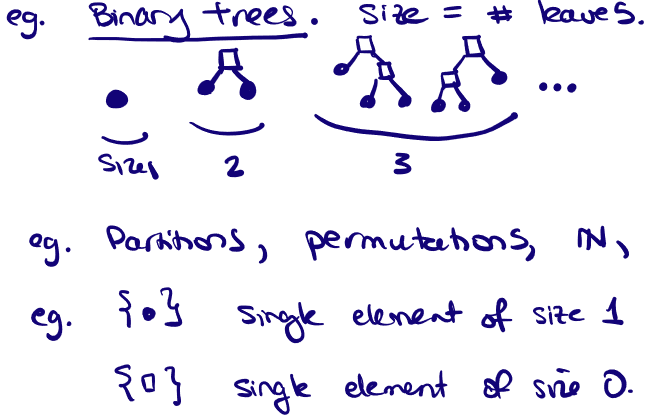 eg. Binary trees. Size = # leaves.
...
size 1 2 3
eg. Partitions, permutations, ℕ,
eg. {•} single element of size 1
{□} single element of size 0.